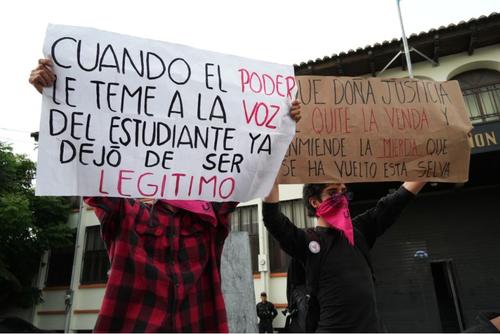 CUANDO EL PODER
LE TEME A LA VOZ
DEL ESTUDIANTE YA
DEJÓ DE SER
LEGITIMO
UE DOÑA JUSTICIA
QUITE LA VENDA Y
NMIENDE LA MIERDA QUE
SE HA VUELTO ESTA SELVA
ON